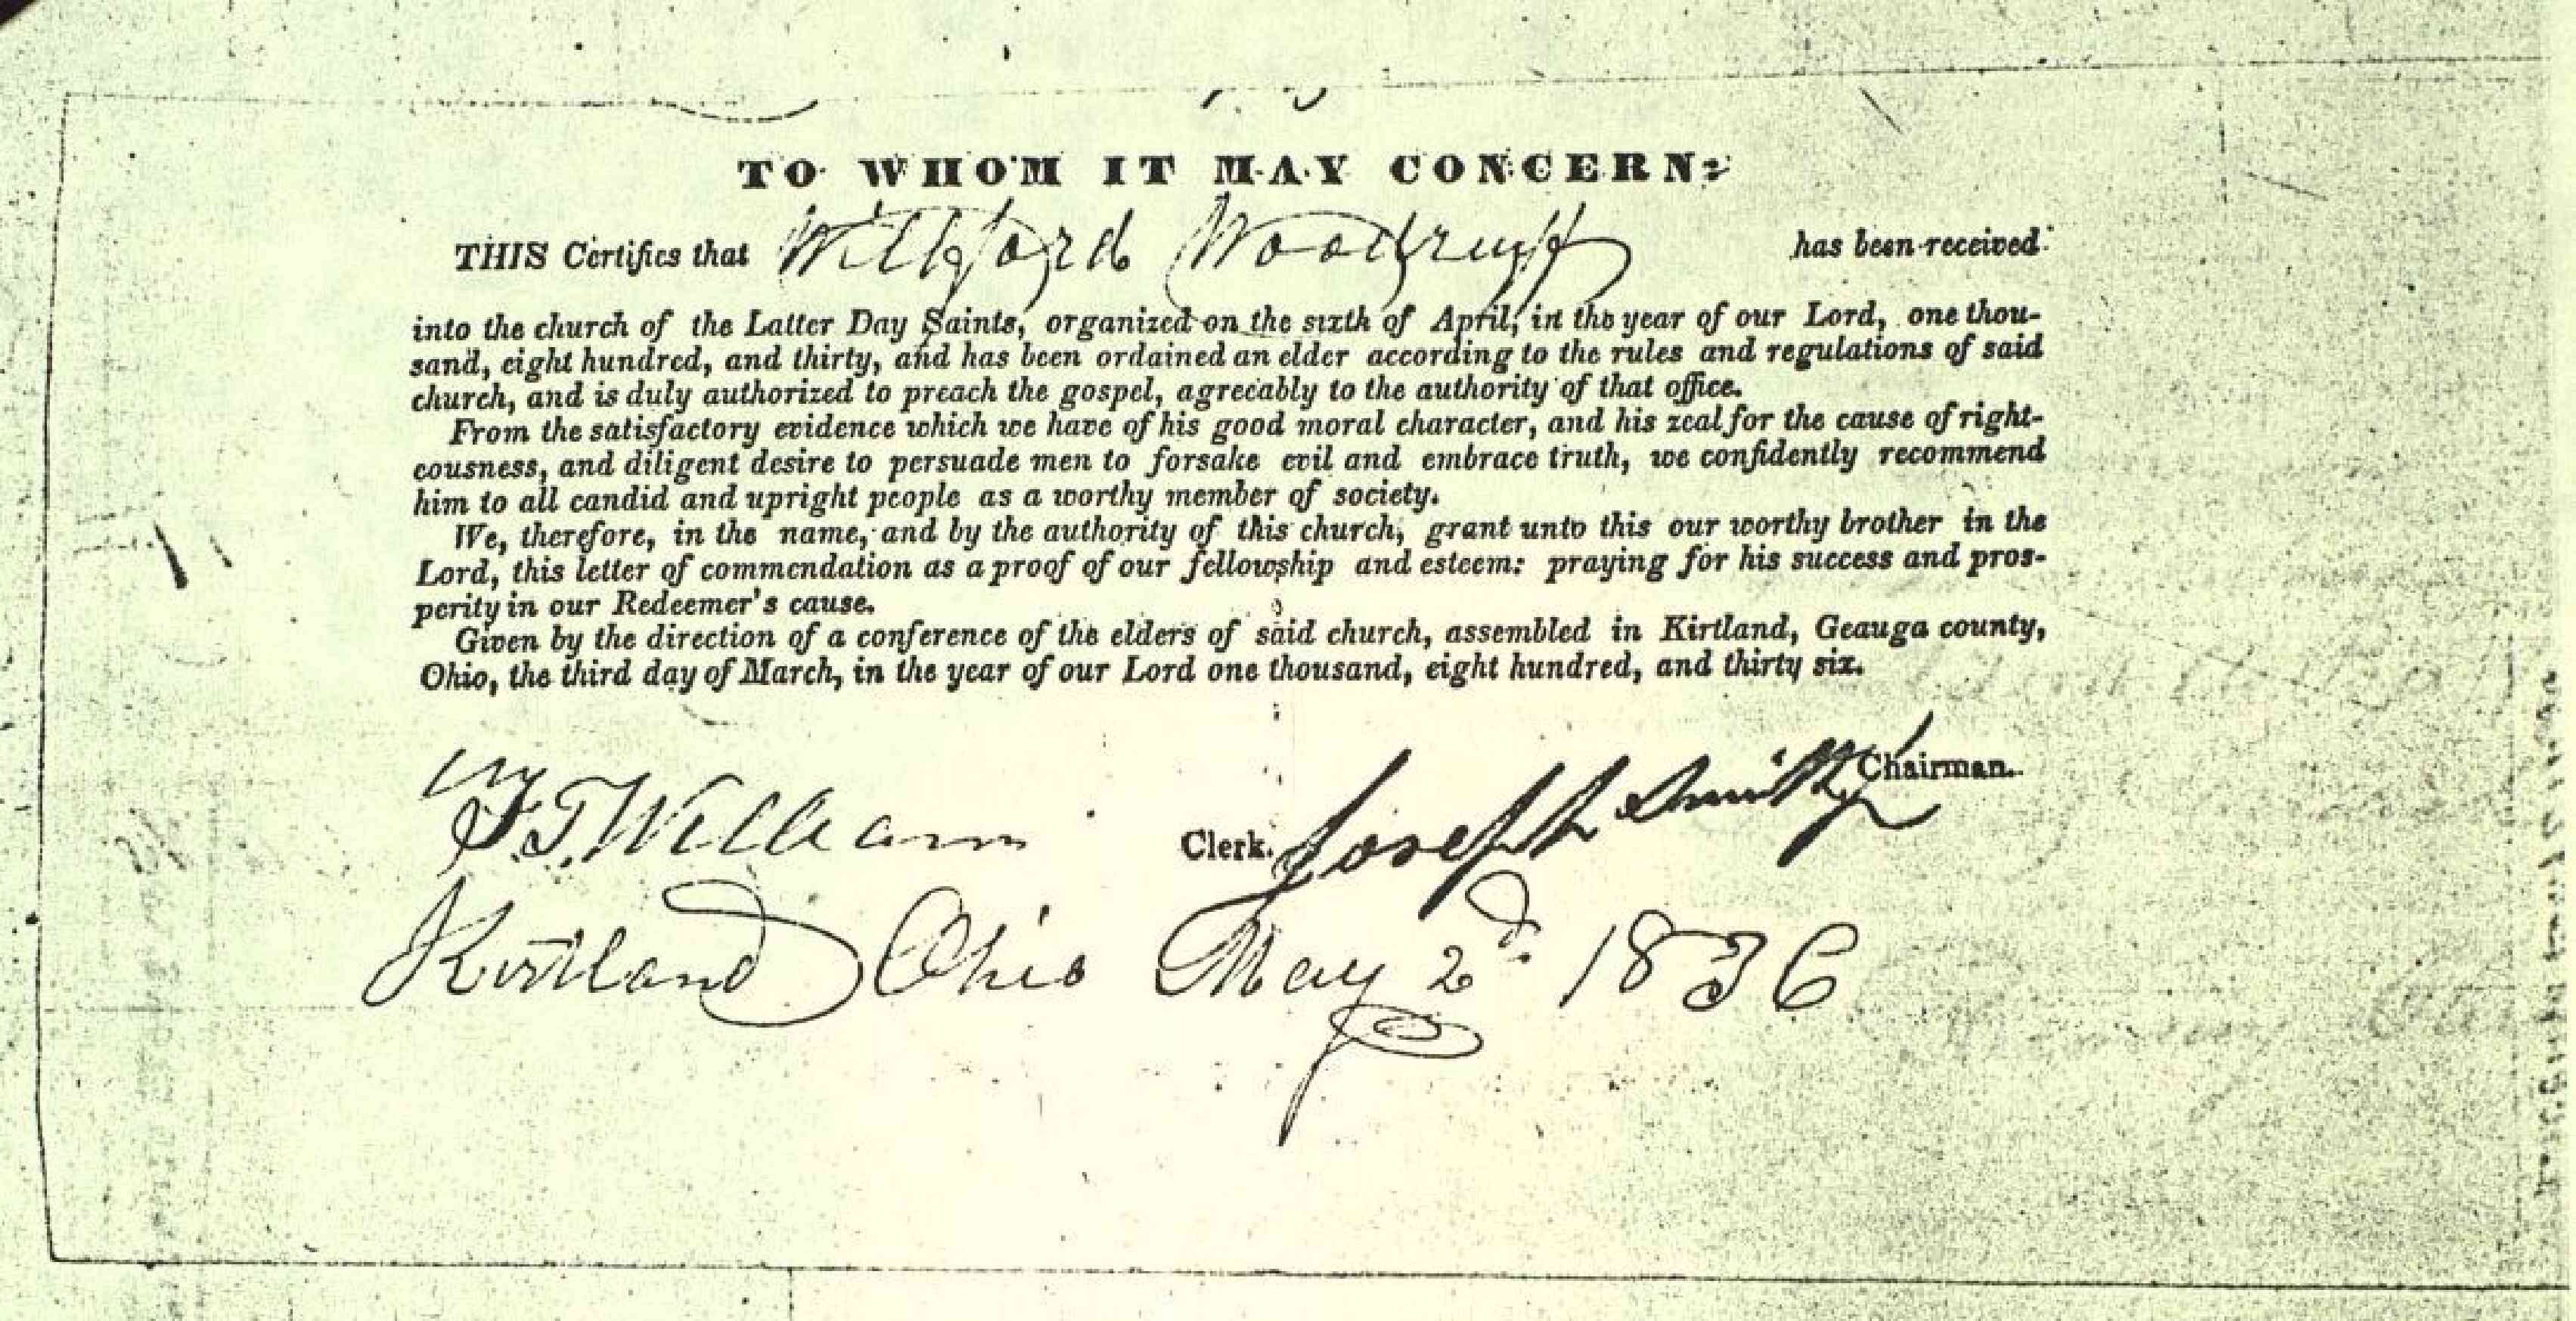 TO WHOM IT MAY CONCERN:
THIS Certifies that Wilford Woodruff has been received
into the church of the Latter Day Saints, organized on the sixth of April, in the year of our Lord, one thou-
sand, eight hundred, and thirty, and has been ordained an elder according to the rules and regulations of said
church, and is duly authorized to preach the gospel, agreeably to the authority of that office.
From the satisfactory evidence which we have of his good moral character, and his zeal for the cause of right-
eousness, and diligent desire to persuade men to forsake evil and embrace truth, we confidently recommend
him to all candid and upright people as a worthy member of society.
We, therefore, in the name, and by the authority of this church, grant unto this our worthy brother in the
Lord, this letter of commendation as a proof of our fellowship and esteem: praying for his success and pros-
perity in our Redeemer's cause.
Given by the direction of a conference of the elders of said church, assembled in Kirtland, Geauga county,
Ohio, the third day of March, in the year of our Lord one thousand, eight hundred, and thirty six.
Joseph Smith Chairman.
F. G. Williams Clerk.
Kirtland Ohio May 2d. 1836